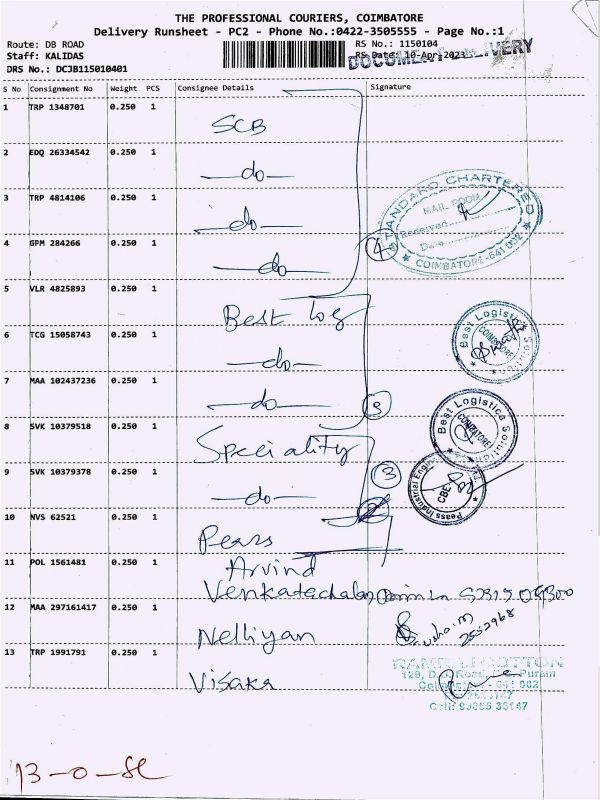 THE PROFESSIONAL COURIERS, COIMBATORE
Delivery Runsheet - PC2 - Phone No.:0422-3505555 - Page No.:1
Route: DB ROAD
RS No.: 1150104
Staff: KALIDAS
RS Date: 10-Apr-2023
DRS No.: DCJB115010401
S No Consignment No Weight PCS Consignee Details Signature
1 TRP 1348701 0.250 1 SCB
2 EDQ 26334542 0.250 1 —do—
3 TRP 4814106 0.250 1 —do—
4 GPM 284266 0.250 1 —do— 4
STANDARD CHARTERED
MAIL ROOM
Received
Date
COIMBATORE-641 002
5 VLR 4825893 0.250 1 Best Log
6 TCG 15058743 0.250 1 —do—
Best Logistics Solution
COIMBATORE
7 MAA 102437236 0.250 1 —do— 3
8 SVK 10379518 0.250 1 Speciality
Best Logistics Solution
COIMBATORE
9 SVK 10379378 0.250 1 —do— 3
Peass Industrial Engine
CBE
10 NVS 62521 0.250 1 Pears
11 POL 1561481 0.250 1 Arvind
Venkatachalam
12 MAA 297161417 0.250 1 Nelliyan
13 TRP 1991791 0.250 1 Visaka
RAMRAJ COTTON
129, D.B. Road, R.S. Puram
Coimbatore - 641 002
Cell: 99655 36147
13-0-SL